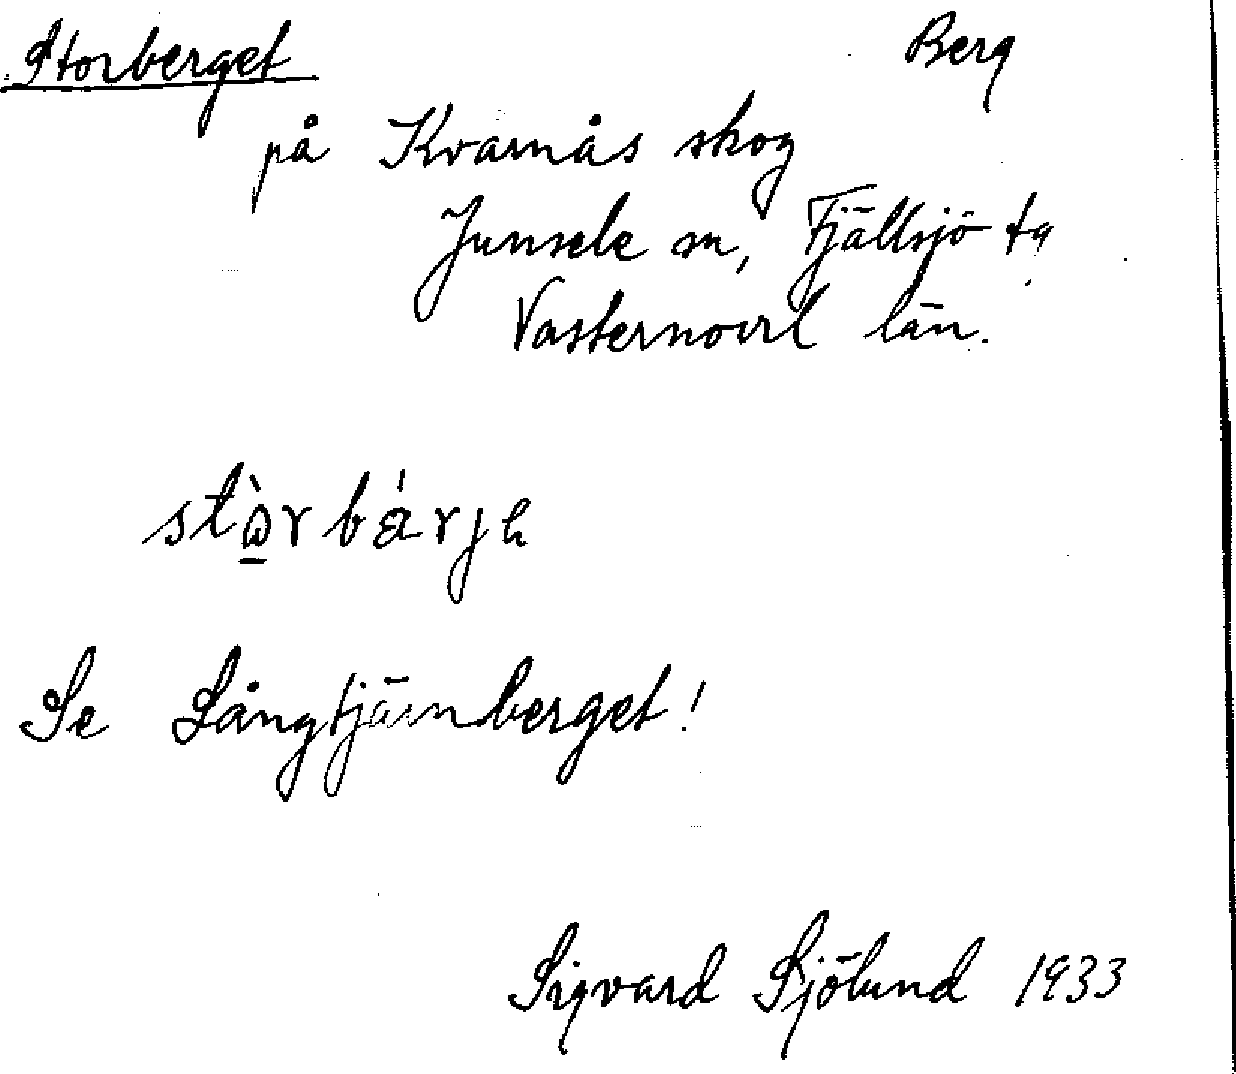 Storberget Berg
på Kvarnås skog
Junsele sn, Fjällsjö tg
Västernorrl län.
stɷ̲̀rbárje
Se Långtjärnberget!
Sigvard Sjölund 1933